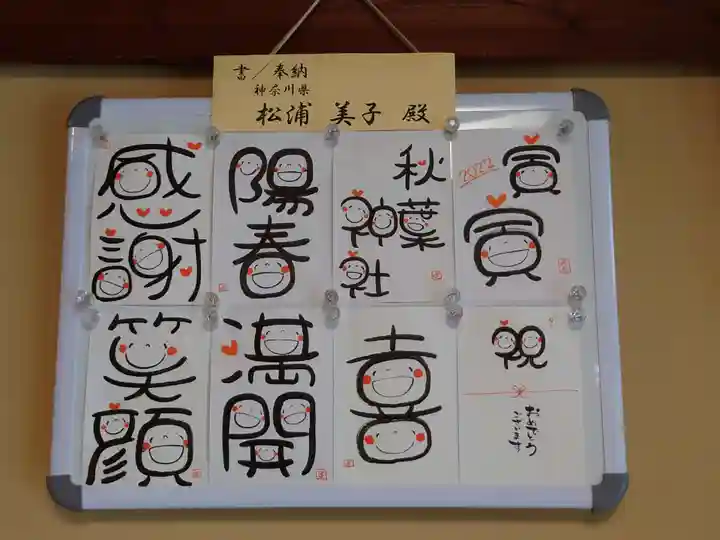 書／奉納
神奈川県
松浦 美子 殿
感謝
陽春
秋葉
神社
2022
寅
寅
笑顔
満開
喜
祝
おめでとう
ございます